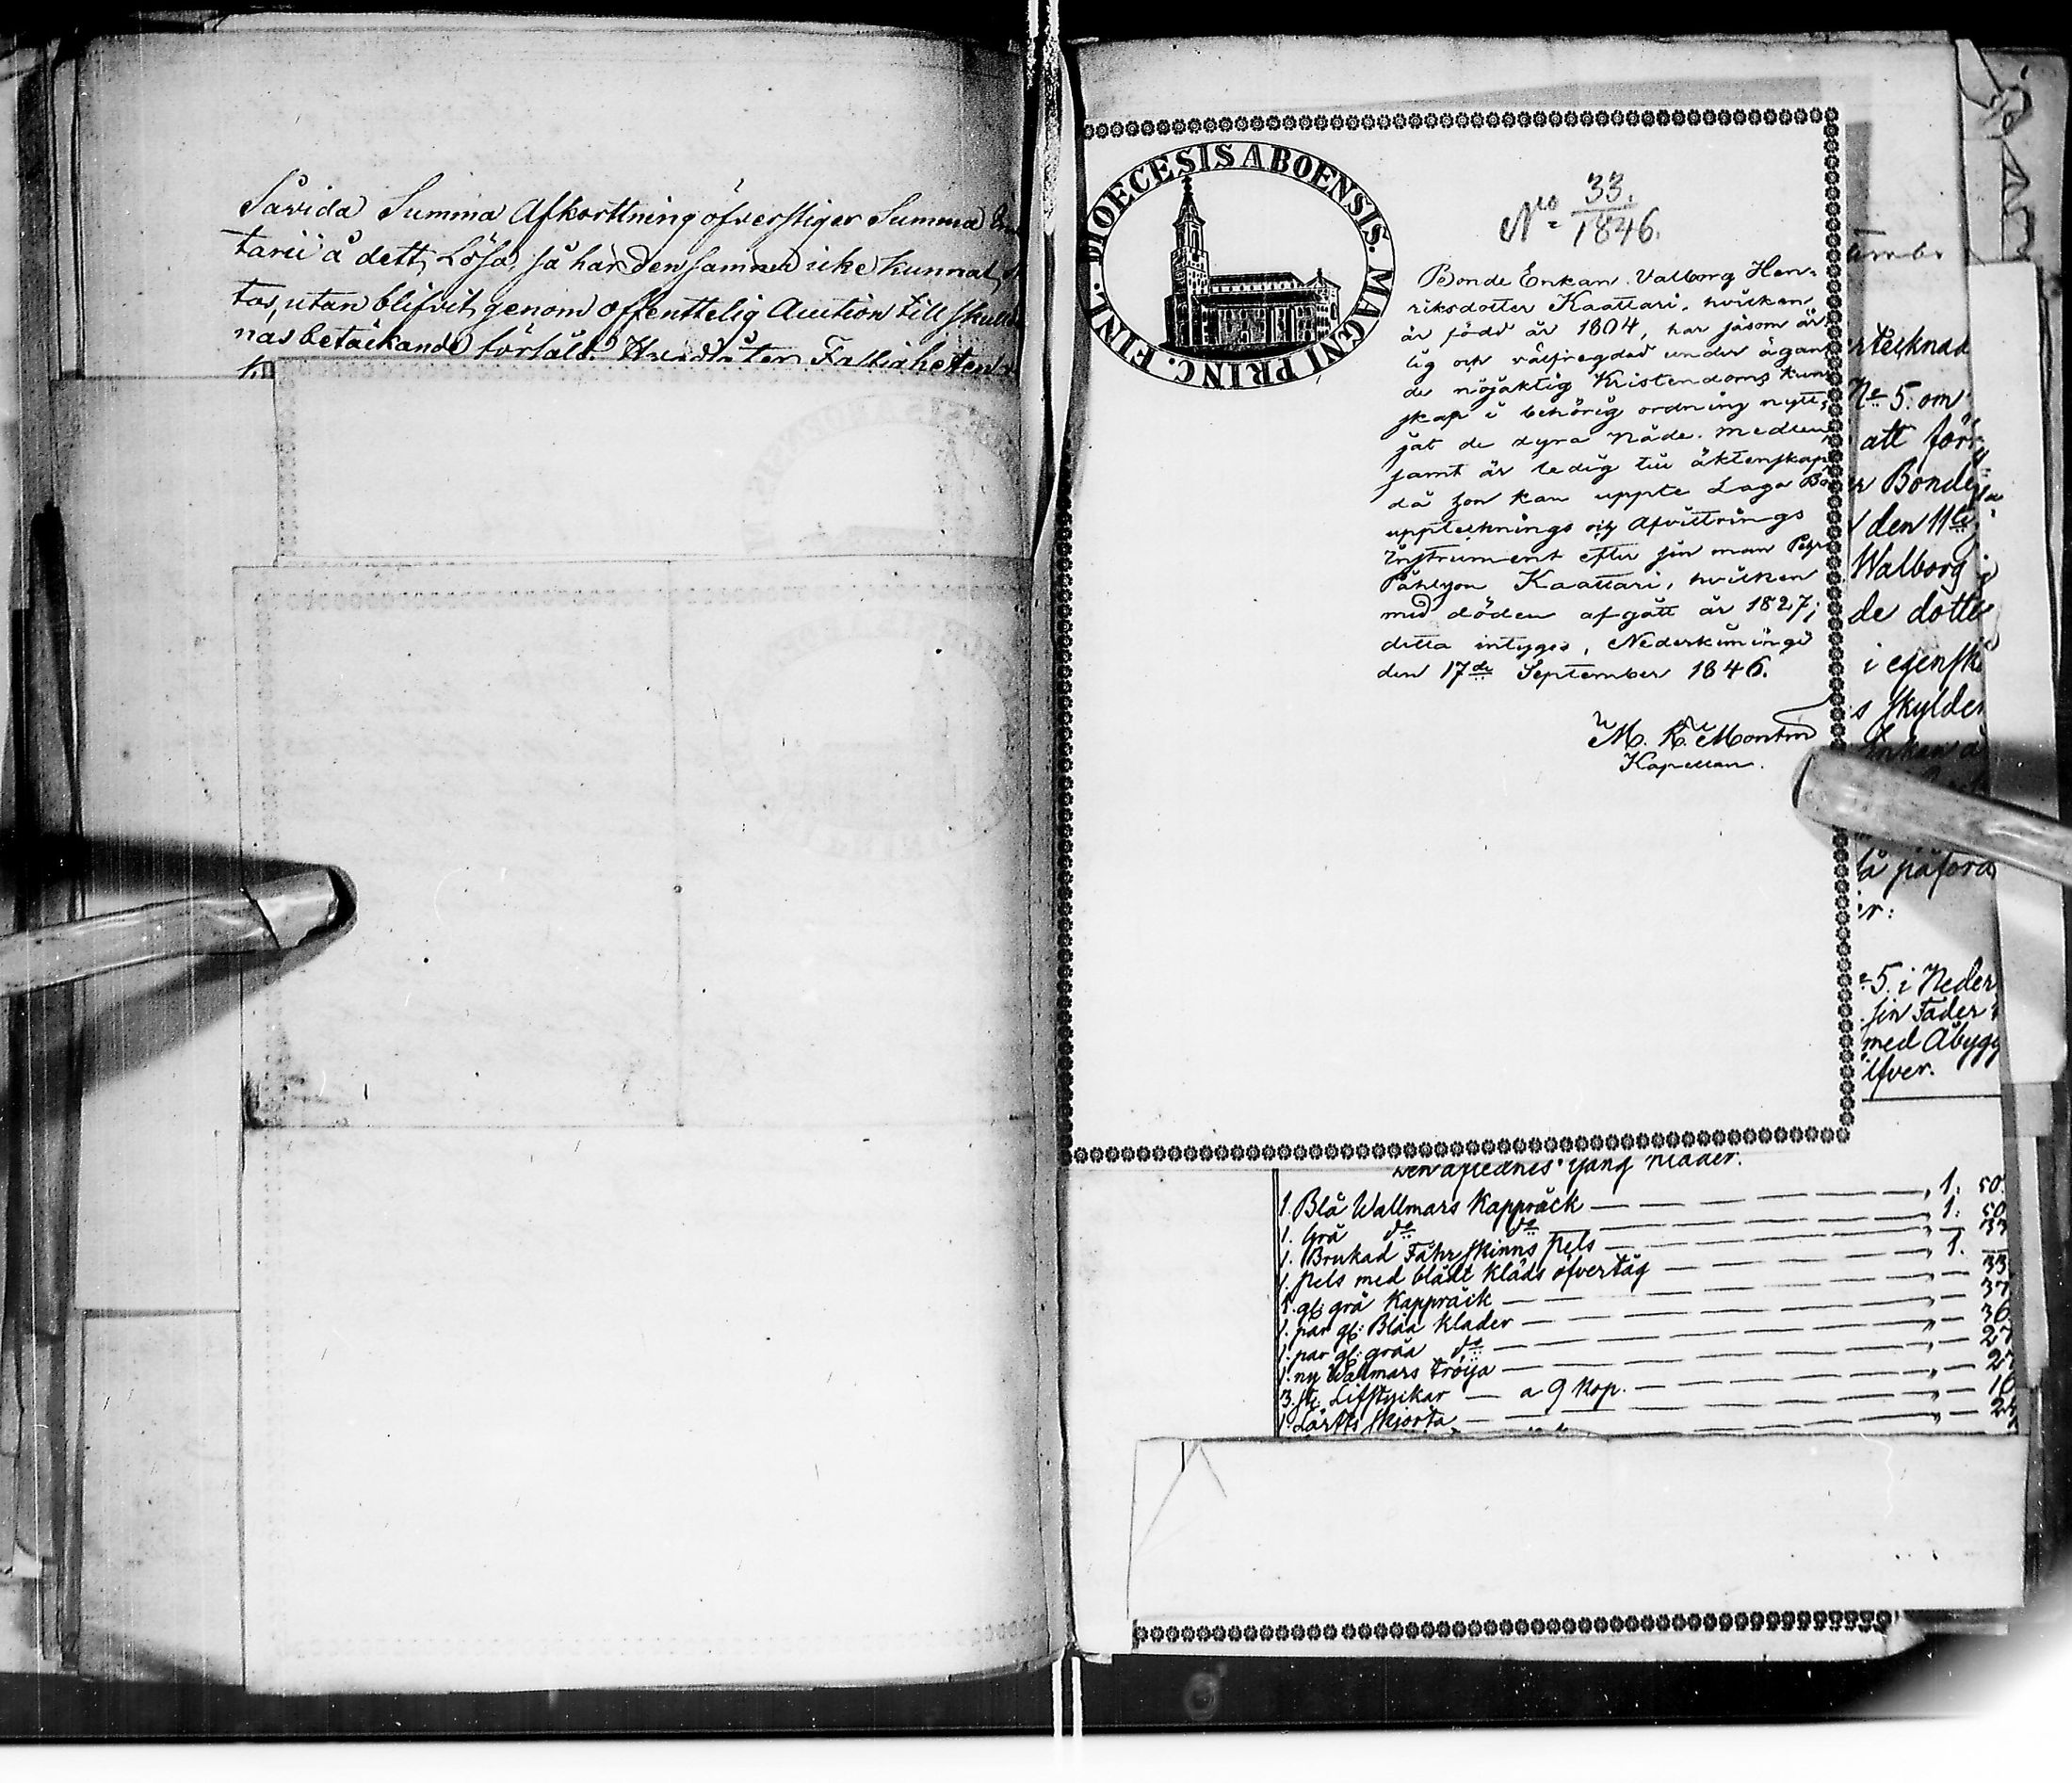 Såvida Summa Afkorttning öfverstiger Summa
tarii å dett Lösa, så har den samma icke kunnat
tas, utan blifvit genom offenttelig Auction till skul
nas betäckande försåld. Hvad åter Fastigheten
DIOECESIS ABOENSIS. MAGNI PRINC. FINL.
No 33.
1846.
Bonde Enkan Valborg Hen-
riksdotter Kaattari, hvilken
är född år 1804, har såsom är
lig och välfregdad under ägan
de nöjaktig Kristendoms kun
skap i behörig ordning nytt-
jat de dyra Nåde medlen
samt är ledig till äktenskap
då hon kan uppte Laga Bo
uppteknings och Afvittrings
Instrument efter sin man Pehr
Påhlson Kaattari, hvilken
med döden afgått år 1827;
detta intygas, Nederkimingi
den 17de September 1846.
M. R. Montin
Kapellan.
rtecknad
No 5: om
att förr
r Bonde
den 11te
Walborg
de dotter
i egensk
s skylder
Enkan a
å påfora
er:
5. i Neder
sin Fader
med Åbygg
ilfver.
Den aflednes Gång Kläder.
1. Blå Wallmars Kappråck — 1: 50.
1. Grå do do — 1: 50
1. Brukad Fåhrskinns pels — 33
1. pels med blått kläds öfvertåg — 1. —
1. gl: grå Kappråck — 33
1. par gl: Blåa Kläder — 37
1. par gl: gråa do — 36
1. ny Wallmars tröija — 27
3. st. Lifstyckar — a 9 Kop. — 27
1. Lärfts skjorta — 16